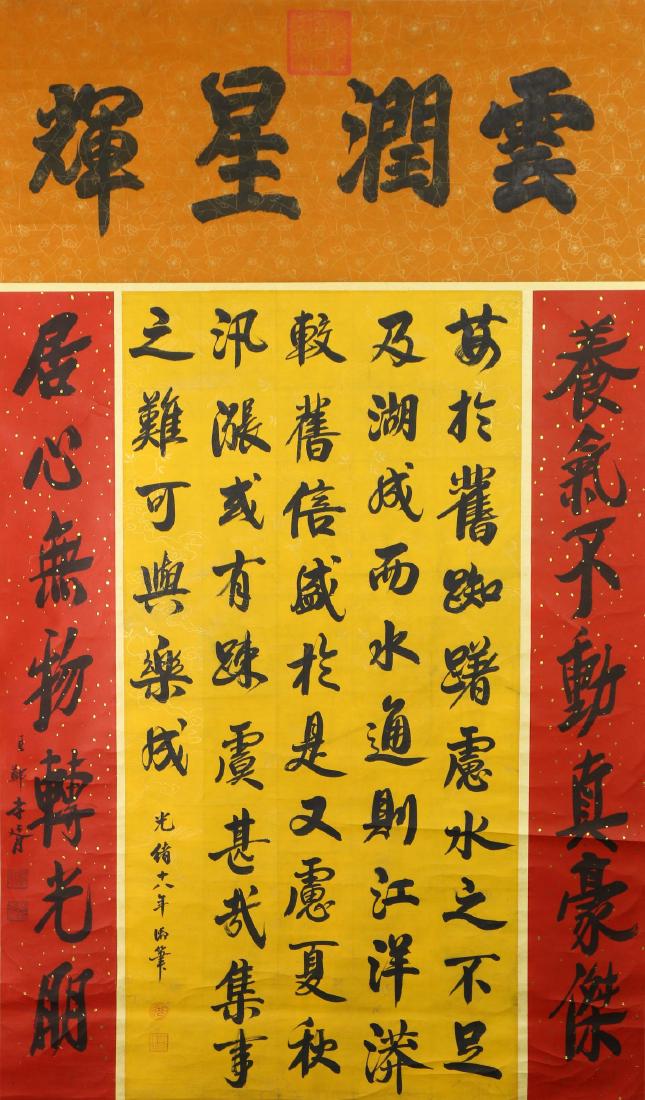 雲潤星輝
養氣不動真豪傑
於舊踟躇慮水之不足
及湖成而水通則江洋漭
較舊倍盛於是又慮夏秋
汛漲或有疎虞甚哉集事
之難可與樂成
光緒十八年御筆
居心無物轉光明